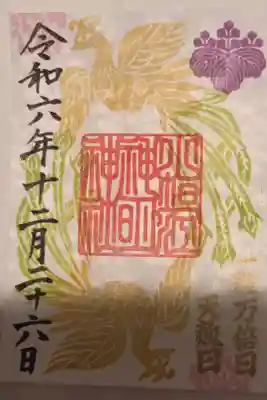 一粒万倍日
天赦日
小垣江
神明
神社
令和六年十二月二十六日